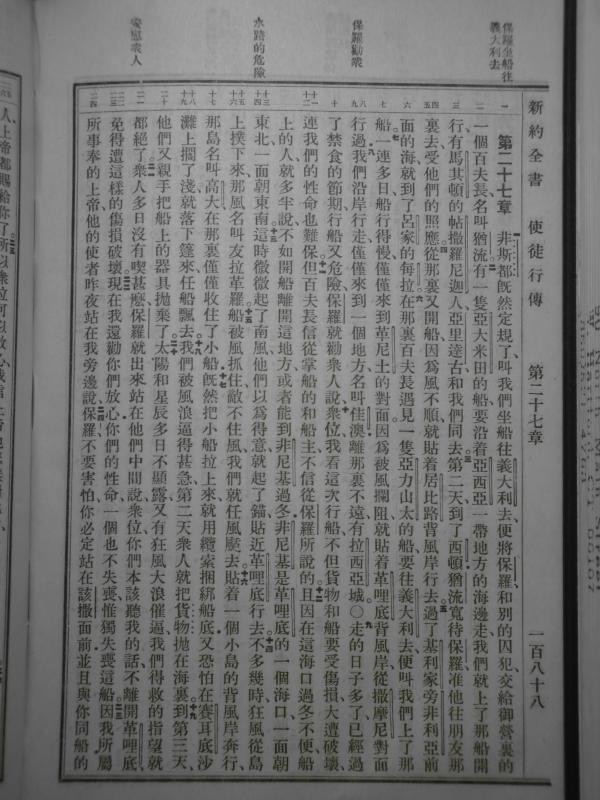 新約全書 使徒行傳 第二十七章 一百八十八
保羅坐船往
義大利去
保羅勸衆
水路的危險
安慰衆人
第二十七章 非斯都旣然定規了、叫我們坐船往義大利去、便將保羅和別的囚犯交給御營裏的
一個百夫長、名叫猶流、有一隻亞大米田的船、要沿着亞西亞一帶地方的海邊走、我們就上了那船開
行、有馬其頓的帖撒羅尼迦人亞里達古和我們同去、第二天到了西頓、猶流寬待保羅、准他往朋友那
裏去受他們的照應、從那裏又開船、因爲風不順、就貼着居比路背風岸行去、過了基利家旁非利亞前
面的海、就到了呂家的每拉、在那裏百夫長遇見一隻亞力山太的船、要往義大利去、便叫我們上了那
船、一連多日船行得慢、僅僅來到革尼土的對面、因爲被風攔阻、就貼着革哩底背風岸、從撒摩尼對面
行過、我們沿岸行走、僅僅來到一個地方、名叫佳澳、離那裏不遠有拉西亞城○走的日子多了、已經過
了禁食的節期、行船又危險、保羅就勸衆人說、衆位、我看這次行船、不但貨物和船要受傷損、大遭破壞、
連我們的性命也難保、但百夫長信從掌船的和船主、不信從保羅所說的、且因在這海口過冬不便、船
上的人就多半說、不如開船離開這地方、或者能到非尼基過冬、非尼基是革哩底的一個海口、一面朝
東北、一面朝東南、這時微微起了南風、他們以爲得意、就起了錨、貼近革哩底行去、不多幾時、狂風從島
上撲下來、那風名叫友拉革羅、船被風抓住、敵不住風、我們就任風颳去、貼着一個小島的背風岸奔行、
那島名叫高大、在那裏僅僅收住了小船、旣然把小船拉上來、就用纜索捆綁船底、又恐怕在賽耳底沙
灘上擱了淺、就落下篷來、任船飄去、我們被風浪逼得甚急、第二天衆人就把貨物抛在海裏、到第三天、
他們又親手把船上的器具抛棄了、太陽和星辰多日不顯露、又有狂風大浪催逼、我們得救的指望就
都絕了、衆人多日沒有喫甚麼、保羅就出來站在他們中間說、衆位、你們本該聽我的話、不離開革哩底、
免得遭這樣的傷損破壞、現在我還勸你們放心、你們的性命、一個也不失喪、惟獨失喪這船、因我所屬
所事奉的上帝、他的使者昨夜站在我旁邊說、保羅、不要害怕、你必定站在該撒面前、並且與你同船的
人、上帝都賜給你了、所以衆位可以放心、